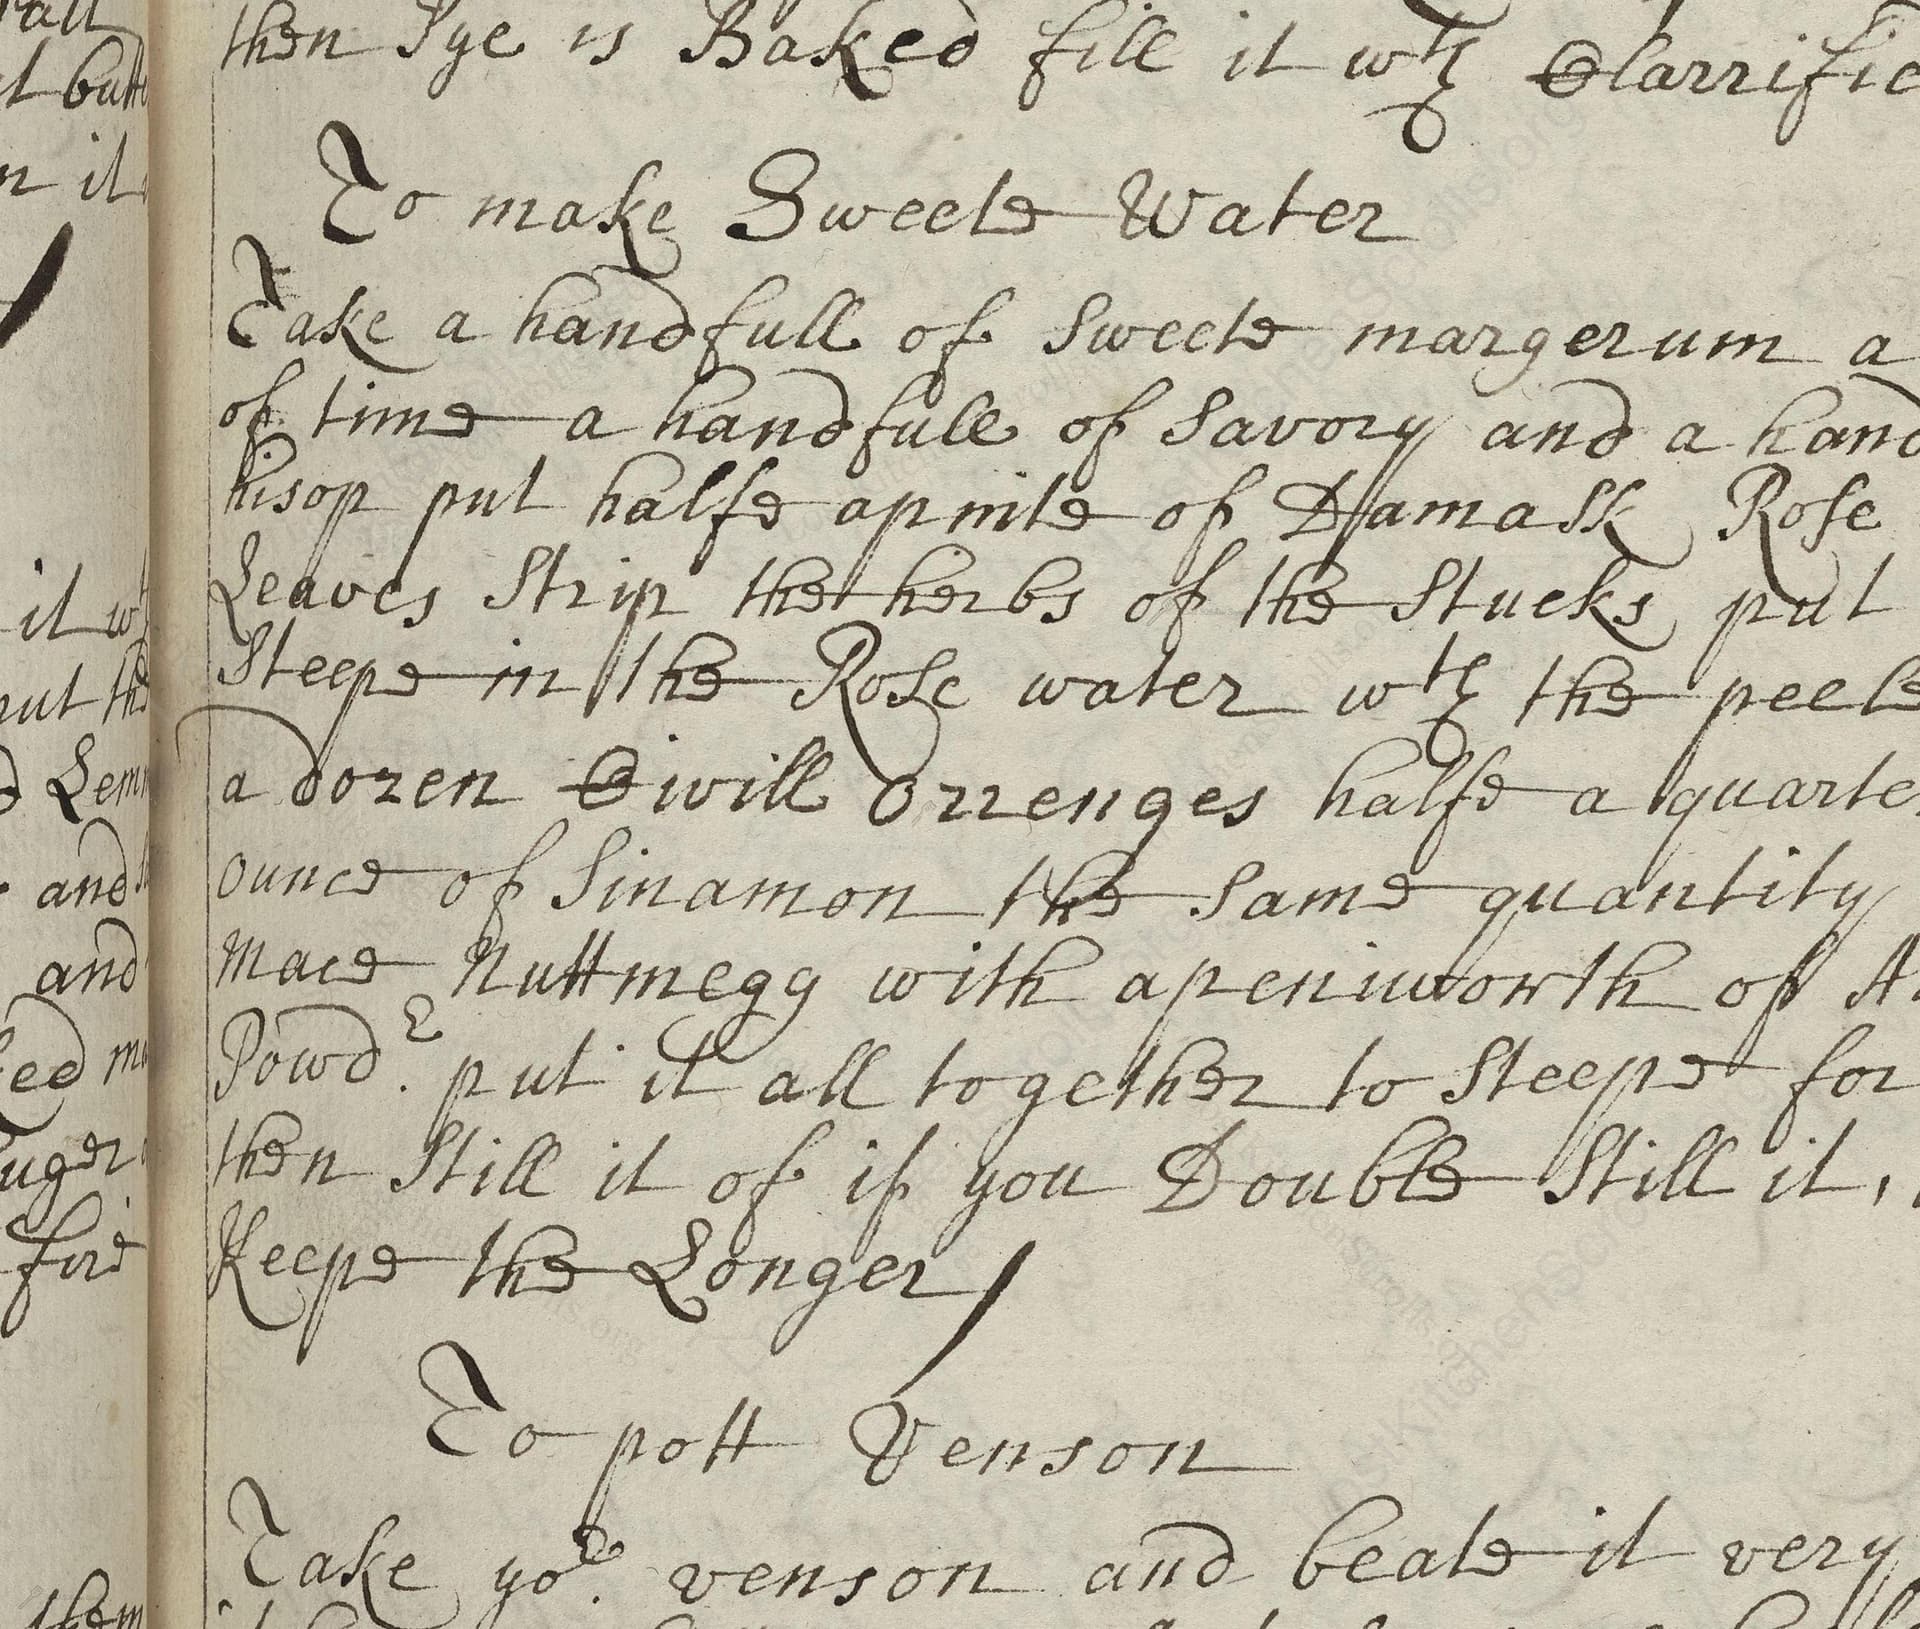 then Pye is Baked fill it wth Clarrifie
To make Sweete Water
Take a handfull of Sweete margerum a
of time a handfull of Savory and a hand
hisop put halfe apinte of Damask Rose
Leaves Strip the herbs of the Stucks put
Steepe in the Rose water wth the peele
a dozen Civill Orrenges halfe a quarte
ounce of Sinamon the Same quantity
mace Nuttmegg with apeniworth of
Powdr. put it all together to Steepe for
then Still it of if you Double Still it,
Keepe the Longer
To pott Venson
Take yor. venson and beate it very